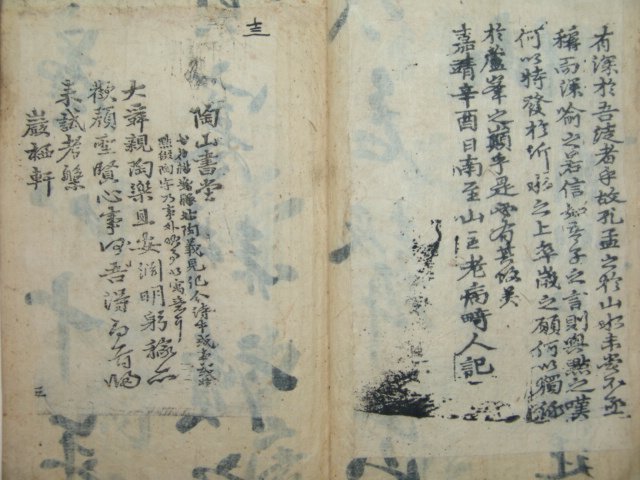 有深於吾徒者乎故孔孟之於山水未嘗不亟
稱而深喻之若信如吾子之言則與點之嘆
何以特發於沂水之上卒歲之願何以獨詠
於蘆峯之巔乎是必有其故矣
嘉靖辛酉日南至山主老病畸人記
十三
陶山書堂
大舜親陶樂且安淵明躬稼亦
歡顏聖賢心事何吾得白首歸
來試考槃
巖栖軒
三